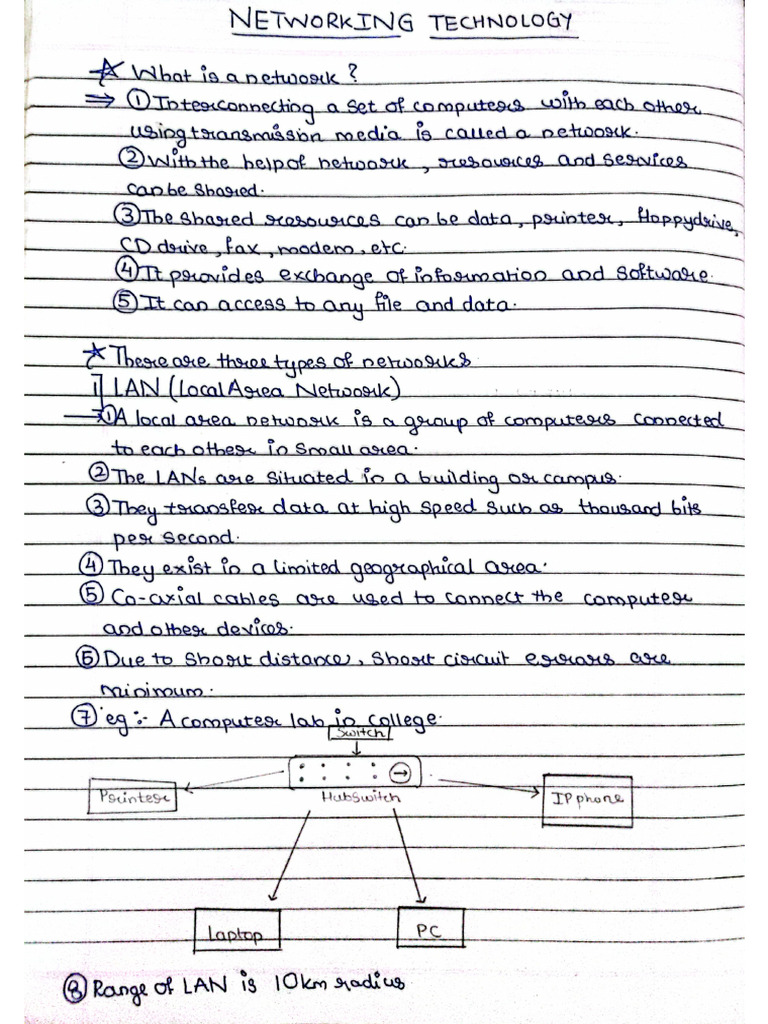 NETWORKING TECHNOLOGY
☆ What is a network?
⇒ ① Interconnecting a set of computers with each other
using transmission media is called a network.
② With the help of network, resources and services
can be shared.
③ The shared resources can be data, printer, Floppydrive,
CD drive, fax, modem, etc.
④ It provides exchange of information and software.
⑤ It can access to any file and data.
☆ There are three types of networks
1] LAN (Local Area Network)
→ ① A local area network is a group of computers connected
to each other in small area.
② The LANs are situated in a building or campus.
③ They transfer data at high speed such as thousand bits
per second.
④ They exist in a limited geographical area.
⑤ Co-axial cables are used to connect the computer
and other devices.
⑥ Due to short distance, short circuit errars are
minimum.
⑦ eg:- A computer lab in college.
Switch
Printer
HubSwitch
IP phone
laptop
PC
⑧ Range of LAN is 10km radius